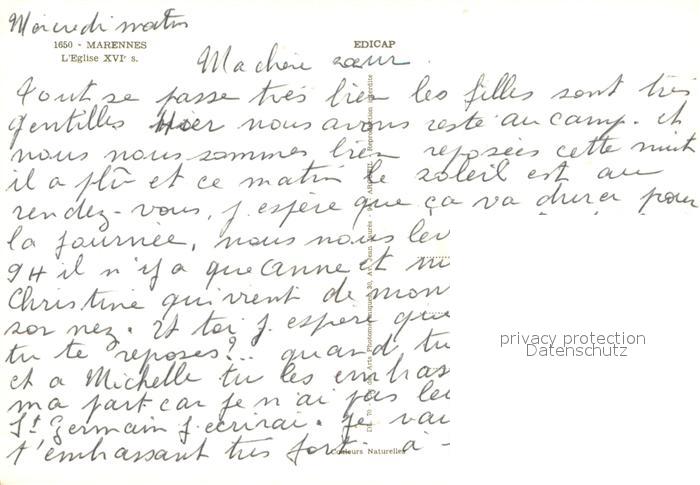 Mercredi matin
1650 - MARENNES
L'Eglise XVIe s.
EDICAP
Ma chère sœur.
Tout se passe très bien les filles sont très
gentilles Hier nous avons resté au camp. et
nous nous sommes bien reposées cette nuit
il a plû et ce matin le soleil est au
rendez-vous, j. espère que ça va durer pour
la journée, nous nous lev
9H il n'y a que Anne et
Christine qui vient de mon
son nez. Et toi j. espère que
tu te reposes?.. quand tu
et a Michelle tu les embras
ma part car je n'ai pas
St Germain j. ecrirai. Je vai
t'embrassant très fort. à -
Couleurs Naturelles
Reproduction interdite
privacy protection
Datenschutz